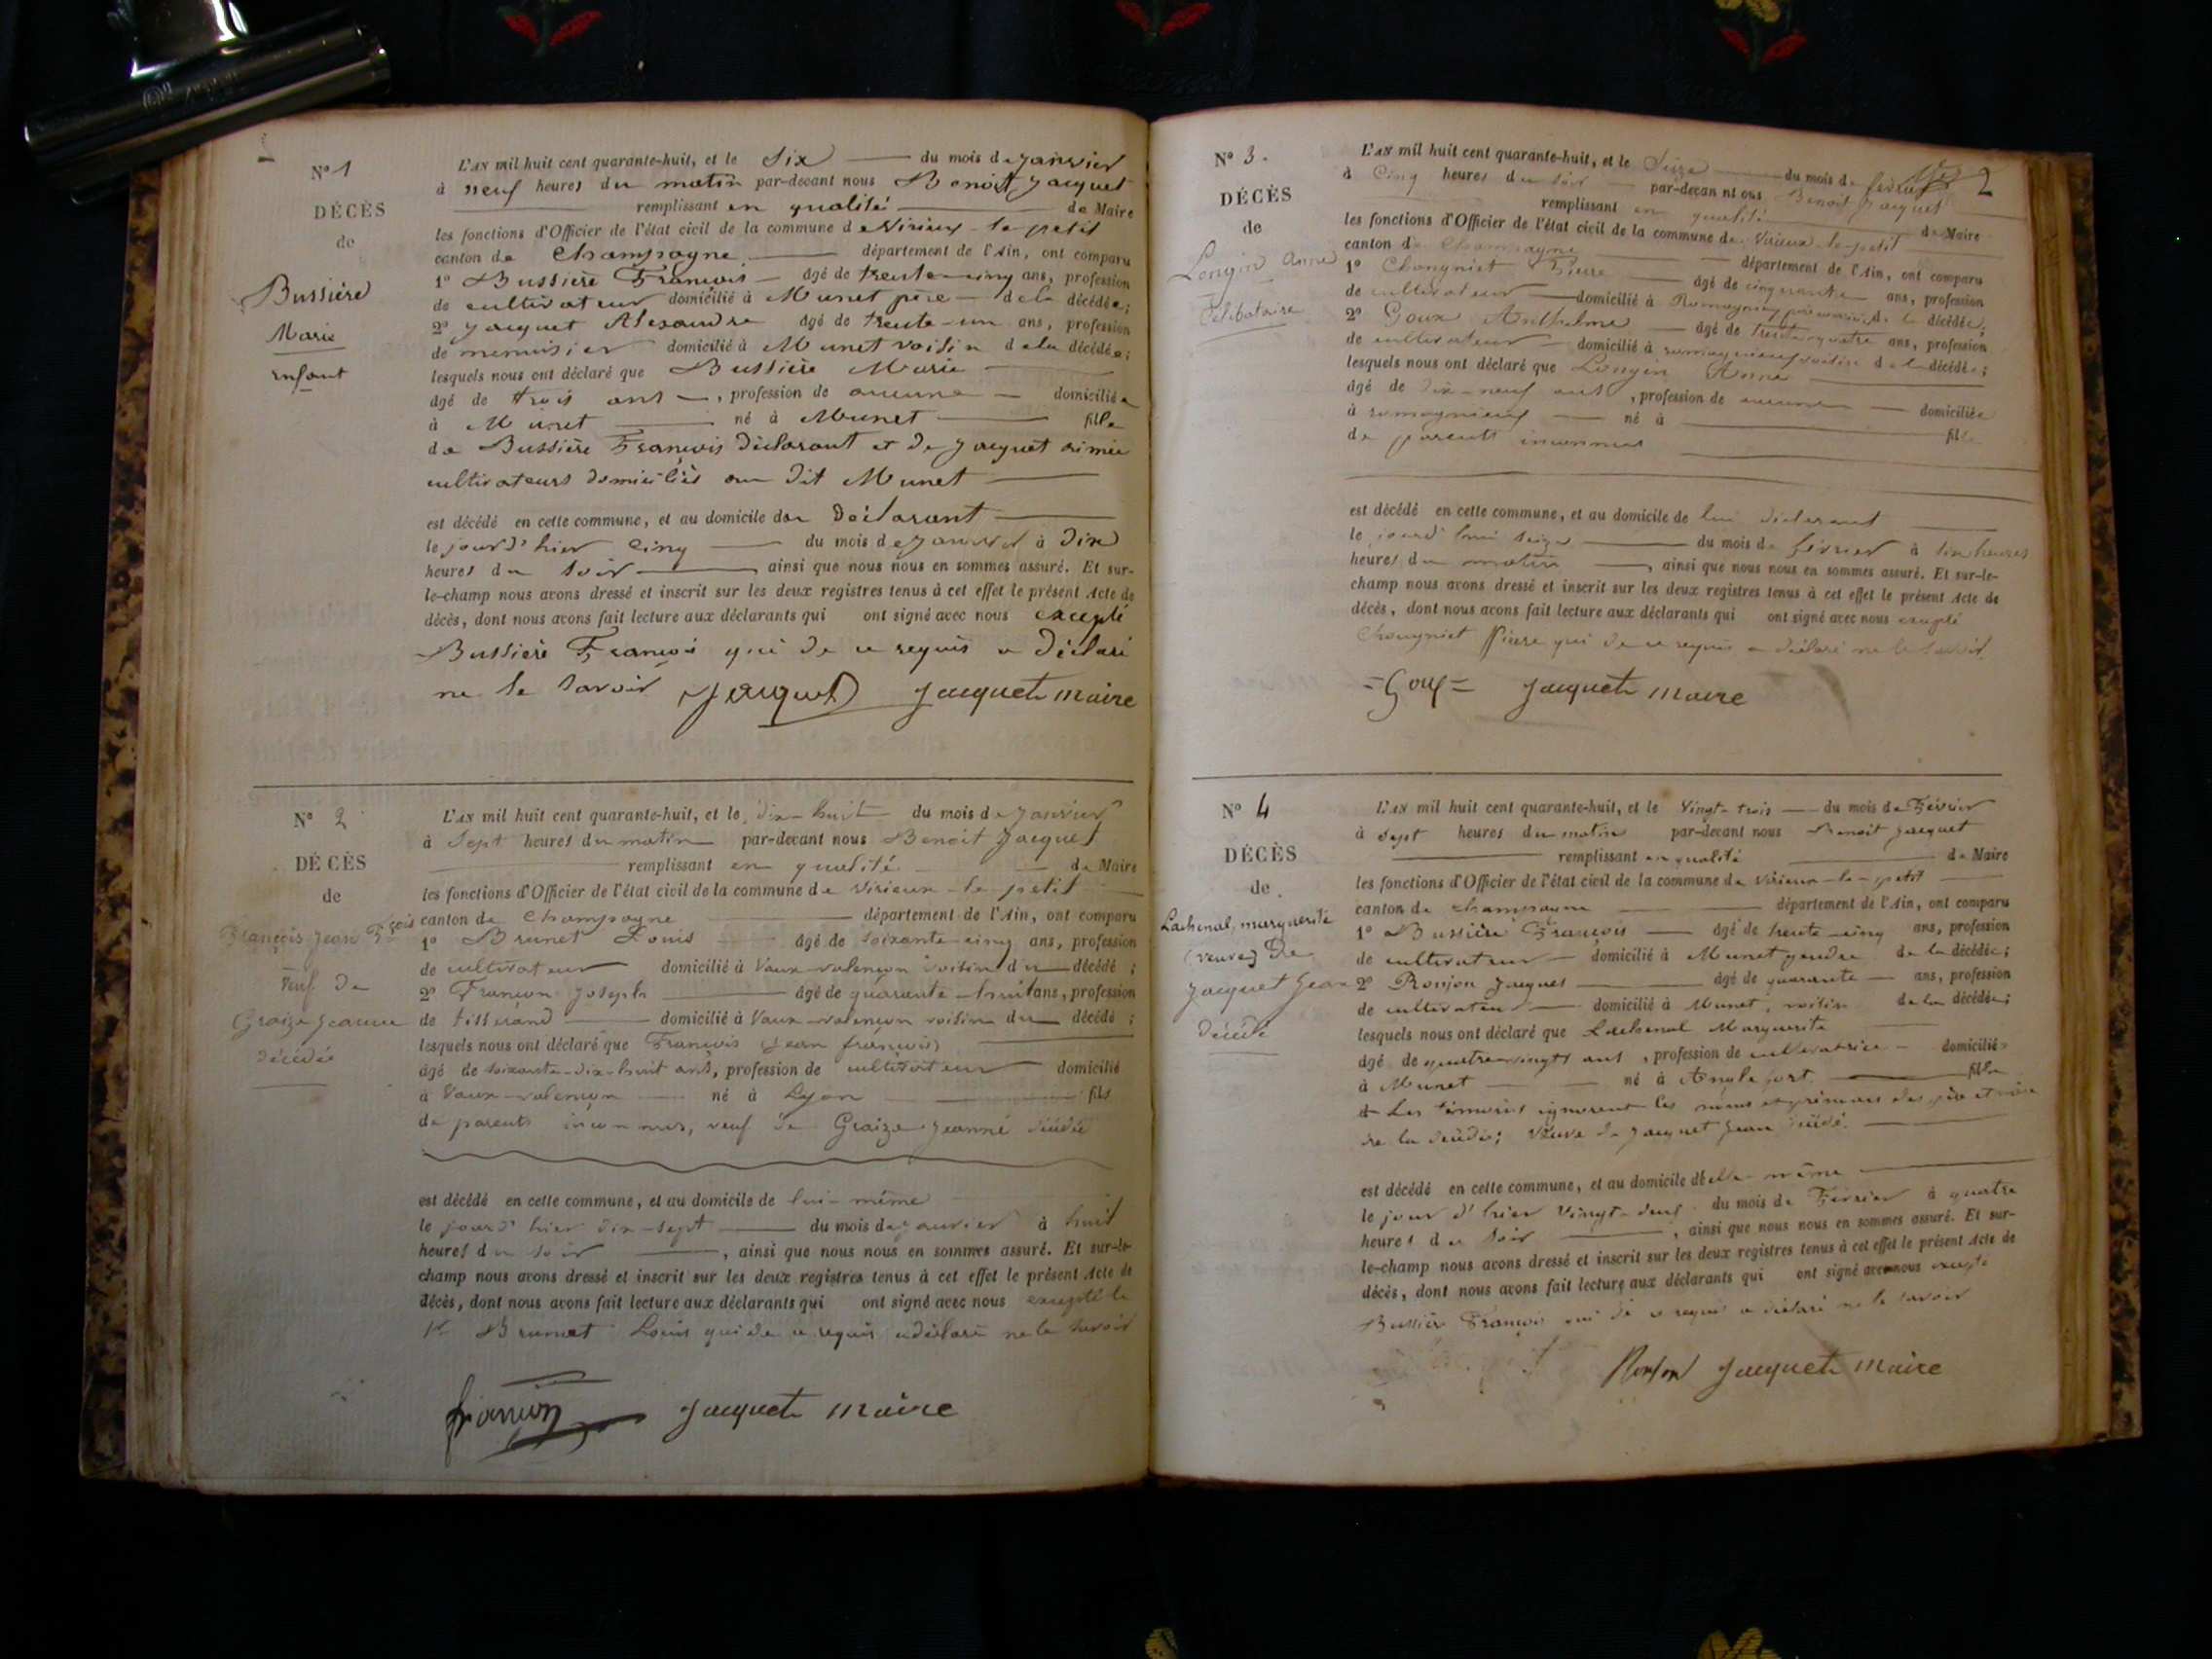 N° 1
DÉCÈS
de
Bussière
Marie
enfant
L'AN mil huit cent quarante-huit, et le Six du mois de janvier
à neuf heures du matin par-devant nous Benoit Jacquet
remplissant en qualité de Maire
les fonctions d'Officier de l'état civil de la commune de Virieux-le-petit
canton de Champagne département de l'Ain, ont comparu
1° Bussière François âgé de trente-cinq ans, profession
de cultivateur domicilié à Munet père de la décédée;
2° Jacquet Alexandre âgé de trente-un ans, profession
de menuisier domicilié à Munet voisin de la décédée;
lesquels nous ont déclaré que Bussière Marie
âgé de trois ans, profession de aucune domiciliée
à Munet né à Munet fille
de Bussière François déclarant et de Jacquet aimée
cultivateurs domiciliés au dit Munet
est décédé en cette commune, et au domicile du Déclarant
le jour d'hier cinq du mois de janvier à dix
heures du soir, ainsi que nous nous en sommes assuré. Et sur-
le-champ nous avons dressé et inscrit sur les deux registres tenus à cet effet le présent Acte de
décès, dont nous avons fait lecture aux déclarants qui ont signé avec nous excepté
Bussière François qui de ce requis a déclaré
ne le savoir Jacquet Jacquet maire
N° 2
DÉCÈS
de
François Jean Fçois
veuf de
Graize Jeanne
décédée
L'AN mil huit cent quarante-huit, et le dix-huit du mois de janvier
à Sept heures du matin par-devant nous Benoit Jacquet
remplissant en qualité de Maire
les fonctions d'Officier de l'état civil de la commune de Virieux-le-petit
canton de Champagne département de l'Ain, ont comparu
1° Brunet Louis âgé de soixante-cinq ans, profession
de cultivateur domicilié à Vaux-valençon voisin du décédé;
2° Françon Joseph âgé de quarante-huit ans, profession
de tisserand domicilié à Vaux-valençon voisin du décédé;
lesquels nous ont déclaré que François (jean françois)
âgé de soixante-dix-huit ans, profession de cultivateur domicilié
à Vaux-valençon né à Lyon fils
de parents inconnus, veuf de Graize Jeanne décédée
est décédé en cette commune, et au domicile de lui-même
le jour d'hier dix-sept du mois de janvier à huit
heures du soir, ainsi que nous nous en sommes assuré. Et sur-le-
champ nous avons dressé et inscrit sur les deux registres tenus à cet effet le présent Acte de
décès, dont nous avons fait lecture aux déclarants qui ont signé avec nous excepté le
1er Brunet Louis qui de ce requis a déclaré ne le savoir
françon Jacquet maire
2
N° 3.
DÉCÈS
de
Longin Anne
Célibataire
L'AN mil huit cent quarante-huit, et le Seize du mois de février
à Cinq heures du soir par-devant nous Benoit Jacquet
remplissant en qualité de Maire
les fonctions d'Officier de l'état civil de la commune de Virieux-le-petit
canton de Champagne département de l'Ain, ont comparu
1° Chongniet Pierre âgé de cinquante ans, profession
de cultivateur domicilié à Romagnieu de la décédée;
2° Goux Anthelme âgé de trente-quatre ans, profession
de cultivateur domicilié à romagnieux voisin de la décédée;
lesquels nous ont déclaré que Longin Anne
âgé de dix-neuf ans, profession de aucune domiciliée
à romagnieux né à fille
de parents inconnus
est décédé en cette commune, et au domicile de lui déclarant
le jourd'hui seize du mois de février à six heures
heures du matin, ainsi que nous nous en sommes assuré. Et sur-le-
champ nous avons dressé et inscrit sur les deux registres tenus à cet effet le présent Acte de
décès, dont nous avons fait lecture aux déclarants qui ont signé avec nous excepté
Chongniet Pierre qui de ce requis a déclaré ne le savoir.
=Goux= Jacquet maire
N° 4
DÉCÈS
de
Lachenal, marguerite
(veuve) De
Jacquet Jean
décédé
L'AN mil huit cent quarante-huit, et le Vingt-trois du mois de Février
à Sept heures du matin par-devant nous Benoit Jacquet
remplissant en qualité de Maire
les fonctions d'Officier de l'état civil de la commune de Virieux-le-petit
canton de Champagne département de l'Ain, ont comparu
1° Bussière François âgé de trente-cinq ans, profession
de cultivateur domicilié à Munet gendre de la décédée;
2° Ronjon Jacques âgé de quarante ans, profession
de cultivateur domicilié à Munet, voisin de la décédée;
lesquels nous ont déclaré que Lachenal Marguerite
âgé de quatre-vingts ans, profession de cultivatrice domiciliée
à Munet né à Anglefort fille
Les témoins ignorent les noms et prénoms des père et mère
de la décédée; Veuve de Jacquet Jean décédé.
est décédé en cette commune, et au domicile d'elle même
le jour d'hier Vingt-deux du mois de Février à quatre
heures du soir, ainsi que nous nous en sommes assuré. Et sur-
le-champ nous avons dressé et inscrit sur les deux registres tenus à cet effet le présent Acte de
décès, dont nous avons fait lecture aux déclarants qui ont signé avec nous excepté
Bussière François qui de ce requis a déclaré ne le savoir
Ronjon Jacquet maire